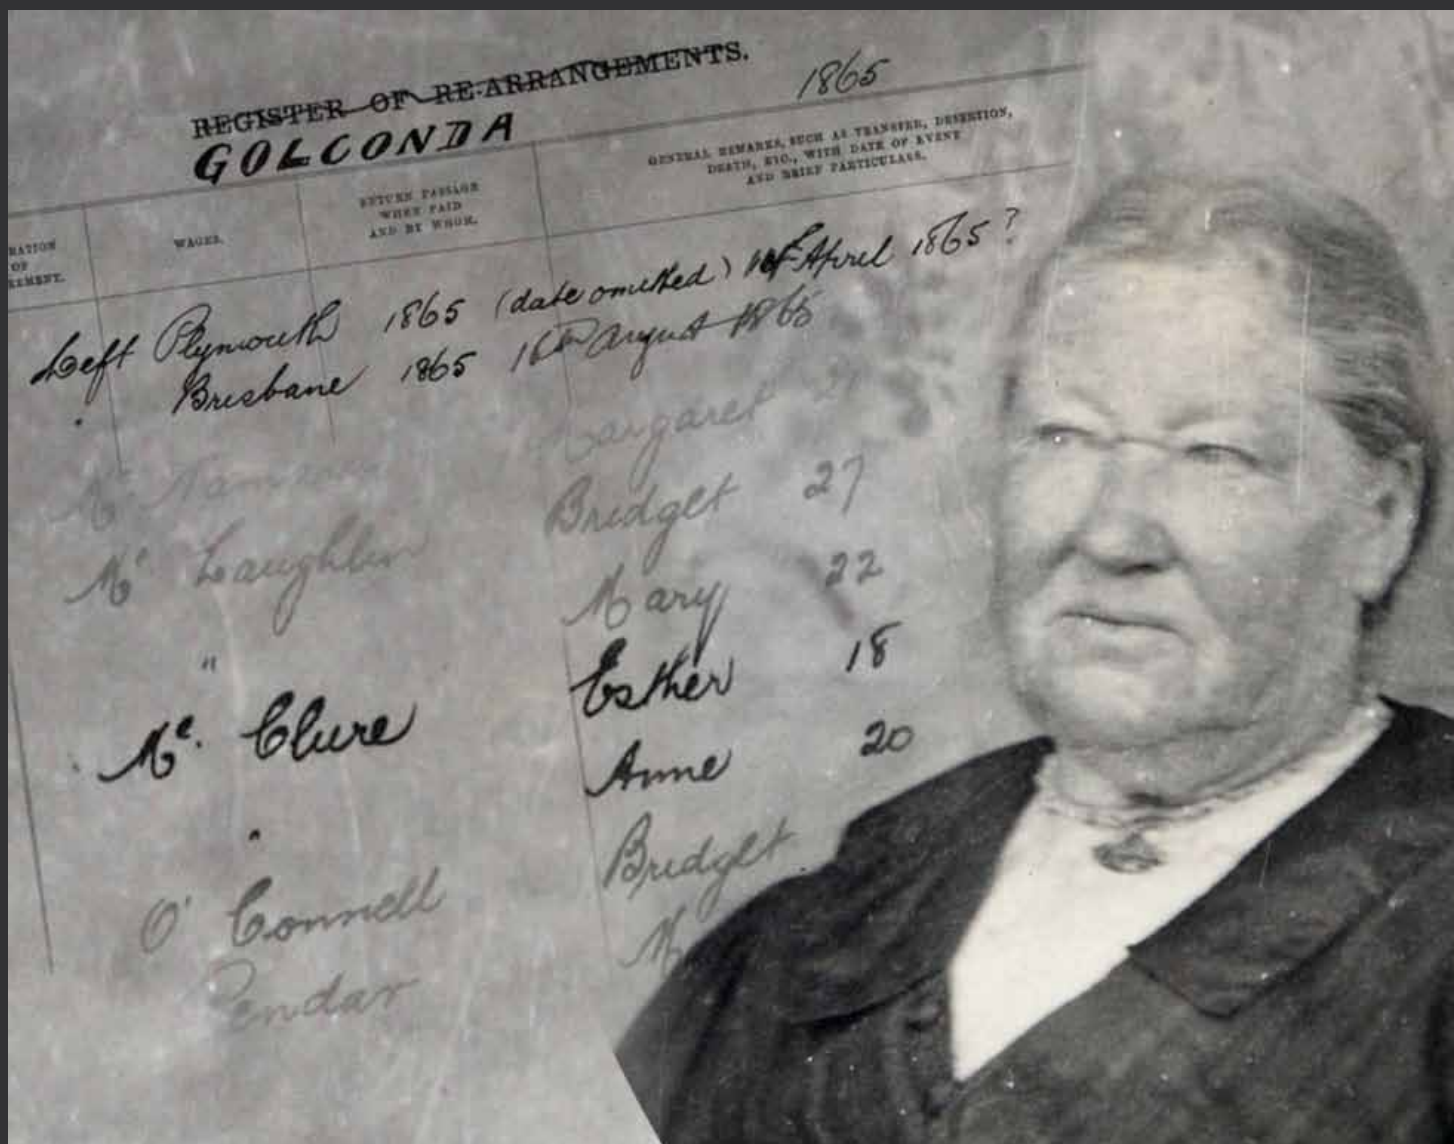 REGISTER OF RE-ARRANGEMENTS.
GOLCONDA
1865
RATION
OF
EMENT.
WAGES.
RETURN PASSAGE
WHEN PAID
AND BY WHOM.
GENERAL REMARKS, SUCH AS TRANSFER, DESERTION,
DEATH, ETC., WITH DATE OF EVENT
AND BRIEF PARTICULARS.
Left Plymouth 1865 (date omitted) April 1865?
Brisbane 1865 16th August 1865
Margaret
Mc Laughlin Bridget 27
" Mary 22
Mc. Clure Esther 18
" Anne 20
O' Connell Bridget
Pendar M